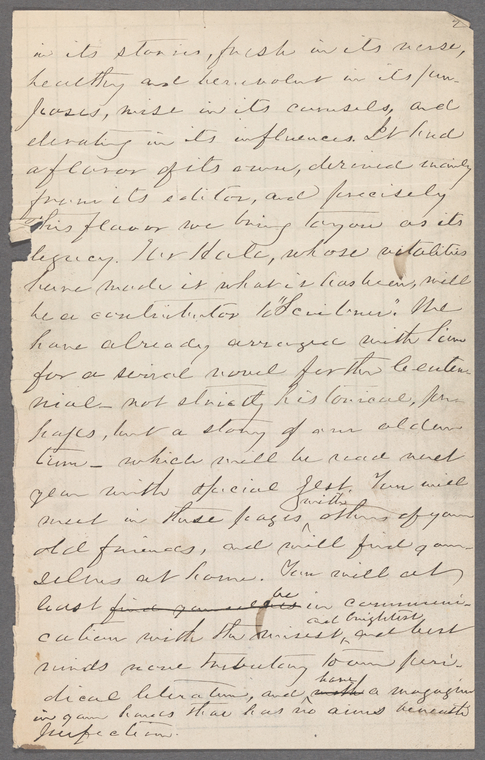 2
in its stories, fresh in its verse,
healthy and benevolent in its pur-
poses, wise in its counsels, and
elevating in its influences. It had
a flavor of its own, derived mainly
from its editor, and precisely
this flavor we bring to you as its
legacy. Mr Hale, whose vitalities
have made it what it has been, will
be a contributor to "Scribner". We
have already arranged with him
for a serial novel for the Centen-
nial — not strictly historical, per-
haps, but a story of our olden
time — which will be read next
year with special zest. You will
meet in these pages, with others of your
old friends, and will find your-
selves at home. You will at
least find yourselves be in communi-
cation with the wisest, and brightest and best
minds now tributary to our peri-
odical literature, and with have a magazine
in your hands that has no aims beneath
perfection.